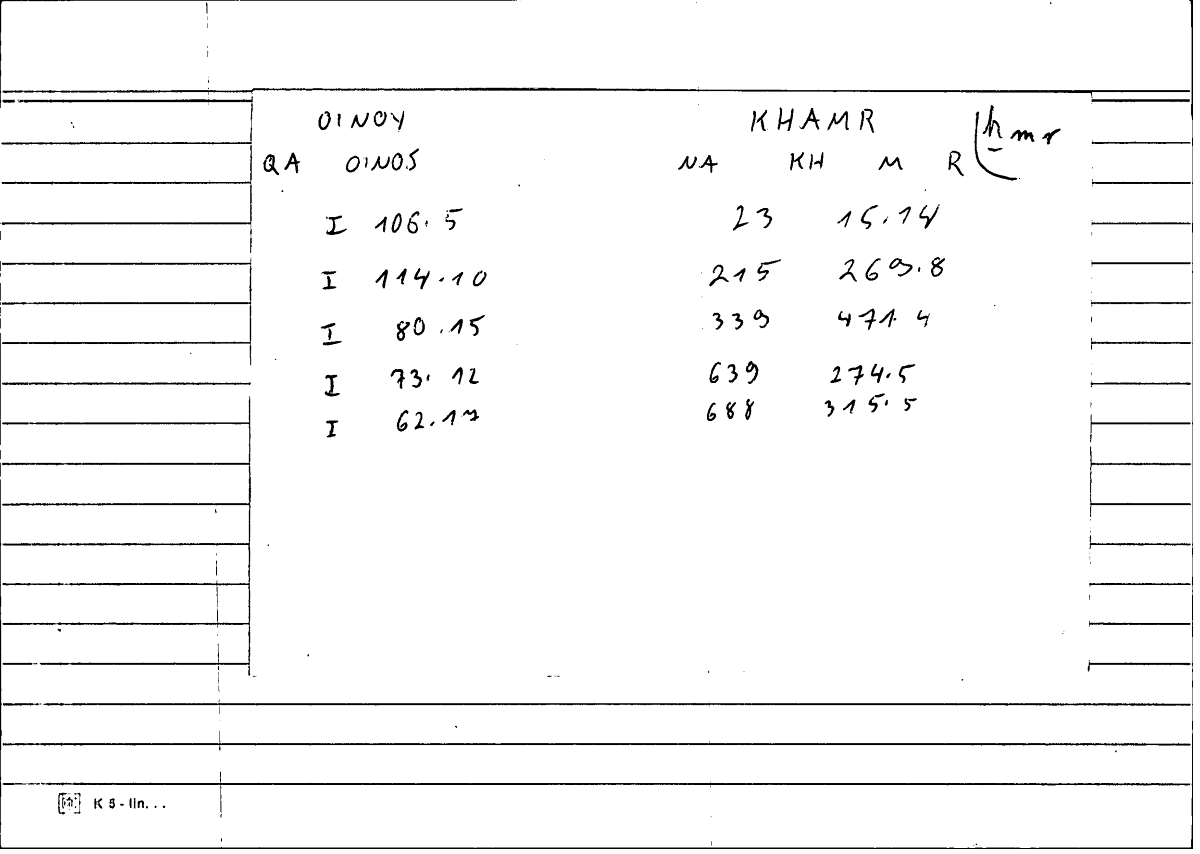 OINOY KHAMR ẖmr
QA OINOS NA KH M R
I 106.5 23 15.14
I 114.10 215 269.8
I 80.15 339 471.4
I 73.12 639 274.5
I 62.17 688 315.5
K 5 - lin...